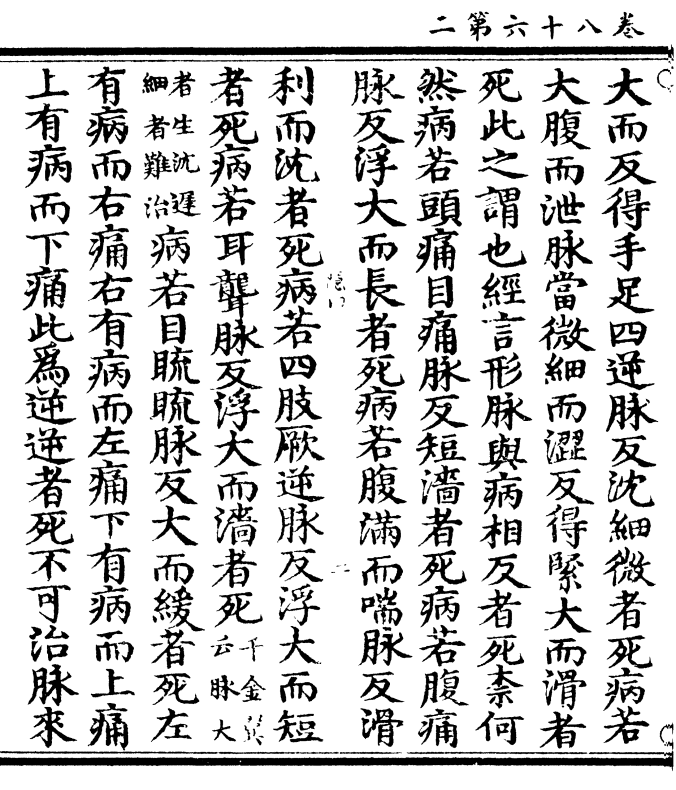 卷八十六第二
大而反得手足四逆脉反沈細微者死病若
大腹而泄脉當微細而澀反得緊大而滑者
死此之謂也經言形脉與病相反者死柰何
然病若頭痛目痛脉反短濇者死病若腹痛
脉反浮大而長者死病若腹滿而喘脉反滑
利而沈者死病若四肢厥逆脉反浮大而短
者死病若耳聾脉反浮大而濇者死千金翼云脉大
者生沈遲細者難治病若目䀮䀮脉反大而緩者死左
有病而右痛右有病而左痛下有病而上痛
上有病而下痛此爲逆逆者死不可治脉來